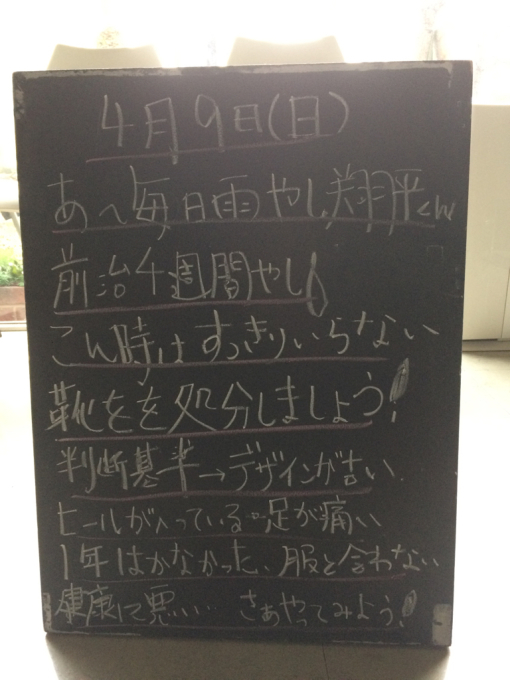 4月9日(日)
あ〜毎日雨やし翔平くん
前治4週間やし!
こん時はすっきりいらない
靴をを処分しましょう!
判断基準→デザインが古い
ヒールがへっている…足が痛い
1年はかなかった、服と合わない
健康に悪い… さあやってみよう!